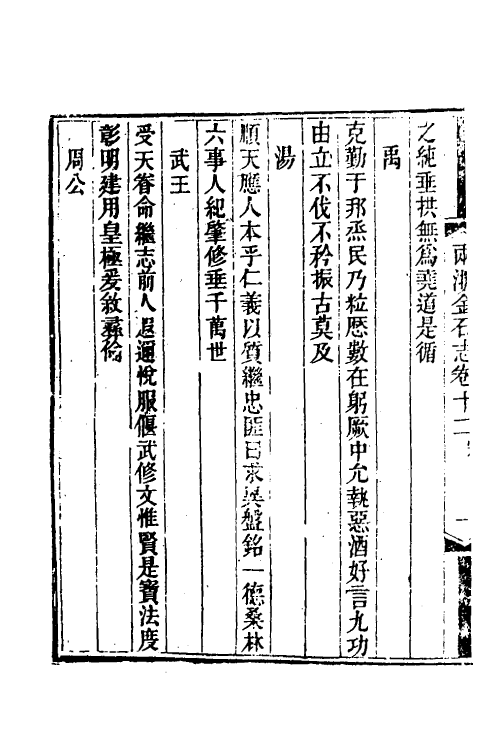 兩浙金石志卷十二
之純垂拱無爲堯道是循
禹
克勤于邦烝民乃粒厯數在躬厥中允執惡酒好言九功
由立不伐不矜振古莫及
湯
順天應人本乎仁義以質繼忠匪曰求異盤銘一德桑林
六事人紀肇修垂千萬世
武王
受天眷命繼志前人遐邇悅服偃武修文惟賢是寶法度
彰明建用皇極爰敘彞倫
周公